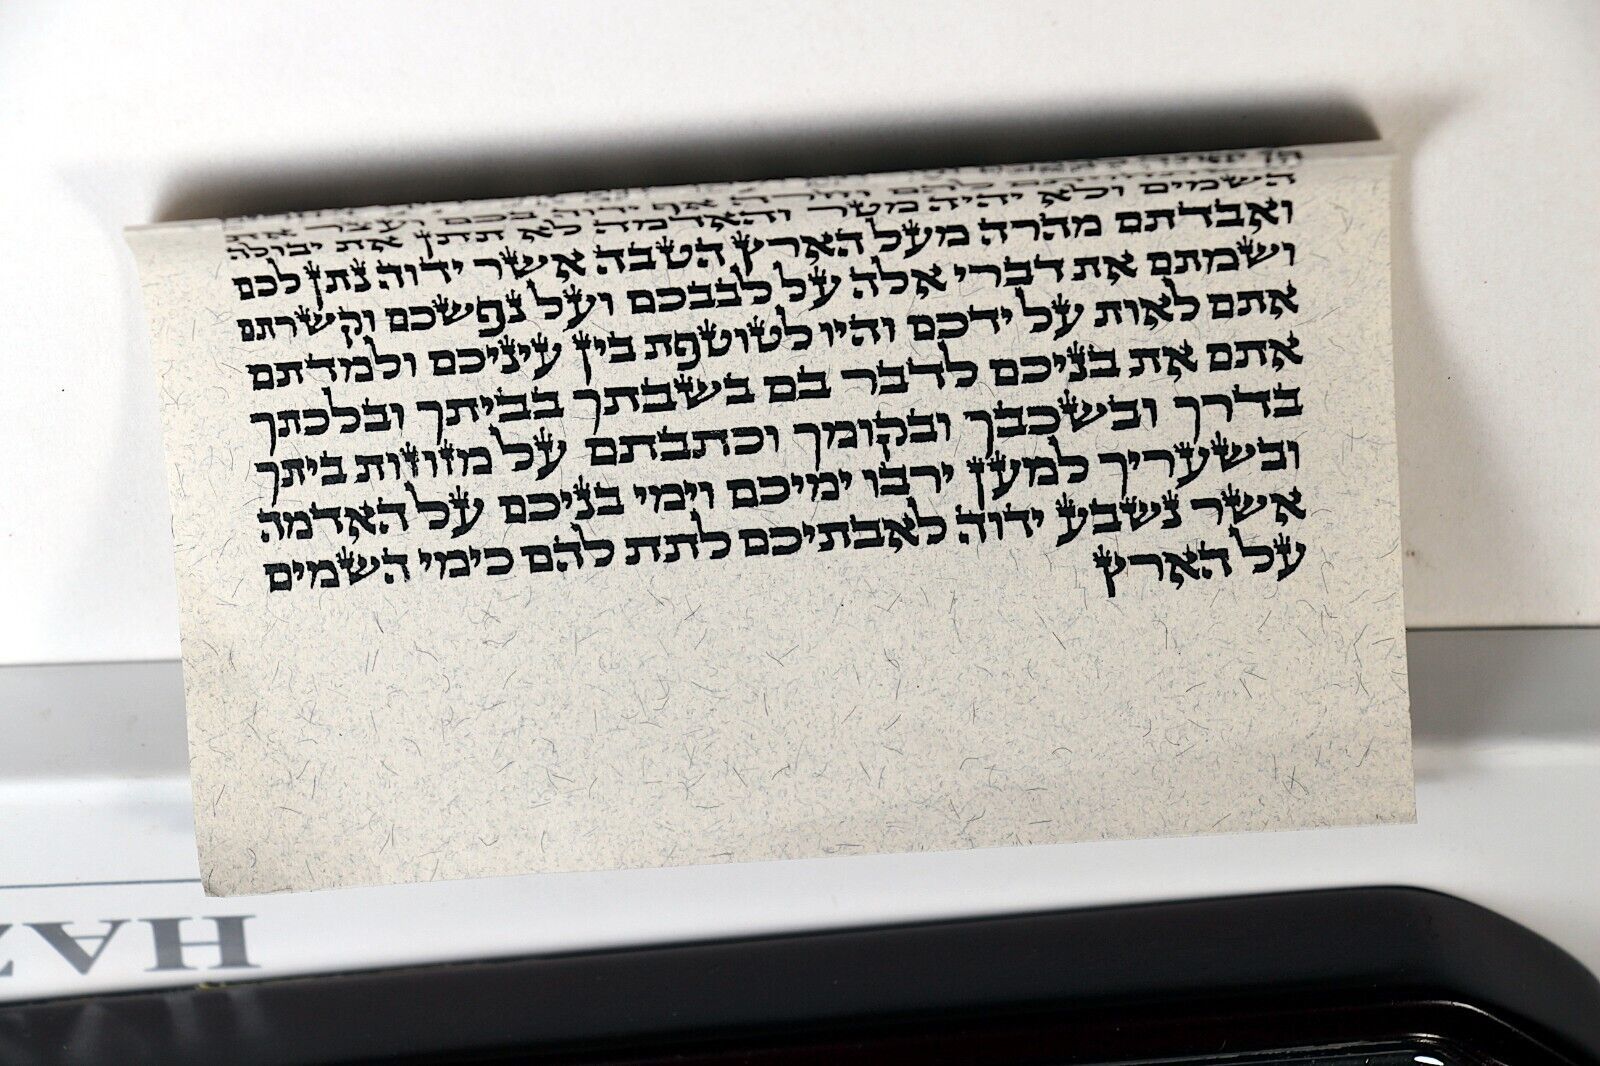 להם וחרה אף ידוה בכם ועצר את
השמים ולא יהיה מטר והאדמה לא תתן את יבולה
ואבדתם מהרה מעל הארץ הטבה אשר ידוה נתן לכם
ושמתם את דברי אלה על לבבכם ועל נפשכם וקשרתם
אתם לאות על ידכם והיו לטוטפת בין עיניכם ולמדתם
אתם את בניכם לדבר בם בשבתך בביתך ובלכתך
בדרך ובשכבך ובקומך וכתבתם על מזוזות ביתך
ובשעריך למען ירבו ימיכם וימי בניכם על האדמה
אשר נשבע ידוה לאבתיכם לתת להם כימי השמים
על הארץ
HAZ